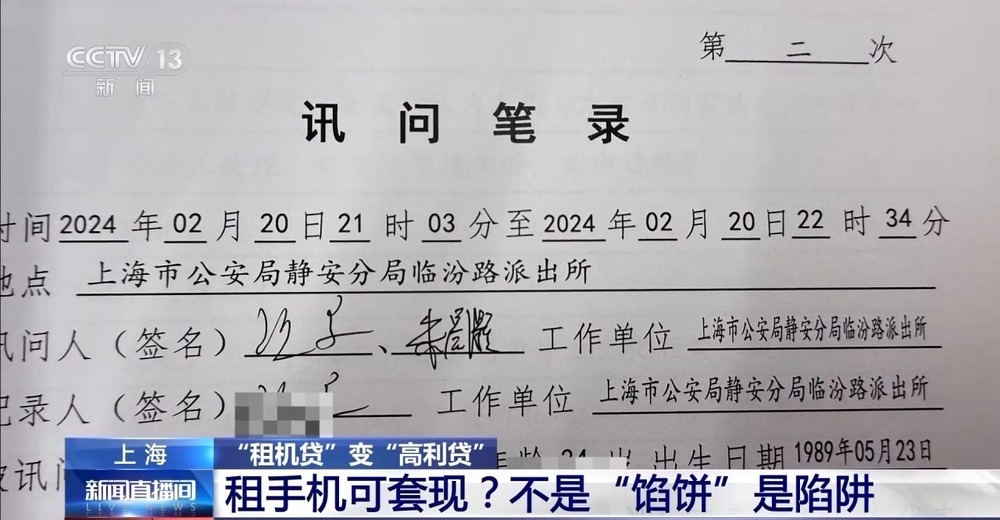 CCTV 13
新闻
第 二 次
讯问笔录
时间2024年02月20日21时03分至2024年02月20日22时34分
地点 上海市公安局静安分局临汾路派出所
讯问人（签名） 、 工作单位 上海市公安局静安分局临汾路派出所
记录人（签名） 工作单位 上海市公安局静安分局临汾路派出所
被讯问 出生日期 1989年05月23日
上海 “租机贷”变“高利贷”
新闻直播间 租手机可套现？不是“馅饼”是陷阱